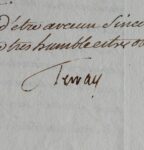 d'être avec un Since
tres humble et tres o
Terray